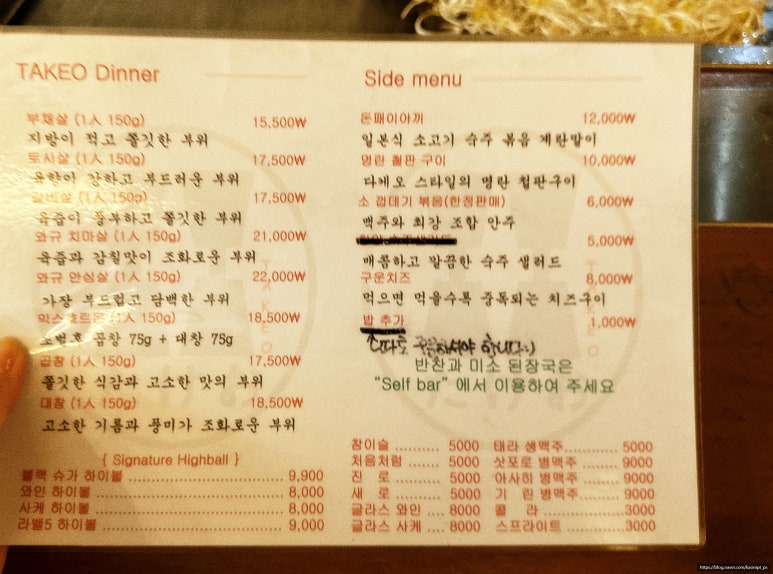 TAKEO Dinner
부채살 (1人 150g) 15,500₩
지방이 적고 쫄깃한 부위
토시살 (1人 150g) 17,500₩
육향이 강하고 부드러운 부위
갈비살 (1人 150g) 17,500₩
육즙이 풍부하고 쫄깃한 부위
와규 치마살 (1人 150g) 21,000₩
육즙과 감칠맛이 조화로운 부위
와규 안심살 (1人 150g) 22,000₩
가장 부드럽고 담백한 부위
믹스호르몬 (1人 150g) 18,500₩
소벌호 곱창 75g + 대창 75g
곱창 (1人 150g) 17,500₩
쫄깃한 식감과 고소한 맛의 부위
대창 (1人 150g) 18,500₩
고소한 기름과 풍미가 조화로운 부위
{ Signature Highball }
블랙 슈가 하이볼 9,900
와인 하이볼 8,000
사케 하이볼 8,000
라벨5 하이볼 9,000
Side menu
돈패이야끼 12,000₩
일본식 소고기 숙주 볶음 계란말이
명란 철판 구이 10,000₩
다케오 스타일의 명란 철판구이
소 껍데기 볶음(한정판매) 6,000₩
맥주와 최강 조합 안주
5,000₩
매콤하고 깔끔한 숙주 샐러드
구운치즈 8,000₩
먹으면 먹을수록 중독되는 치즈구이
밥 추가 1,000₩
하셔야 합니다:)
반찬과 미소 된장국은
“Self bar” 에서 이용하여 주세요
참이슬 .......... 5000
처음처럼 ...... 5000
진 로 .......... 5000
새 로 .......... 5000
글라스 와인 .... 8000
글라스 사케 .... 8000
테라 생맥주 .......... 5000
삿포로 병맥주 ....... 9000
아사히 병맥주 ....... 9000
기 린 병맥주 ....... 9000
콜 라 ................ 3000
스프라이트 ........... 3000
TAKEO
TAKEO